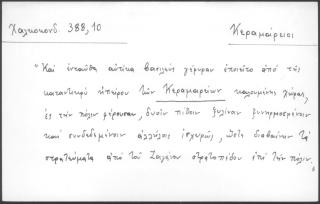 Χαλκοκονδ. 388,10
Κεραμάρειοι
"Καὶ ἐνταῦθα αὐτίκα βασιλεὺς γέφυραν ἐποιεῖτο ἀπὸ τῆς
καταντικρὺ ἠπείρου τῶν Κεραμαρείων καλουμένης χώρας,
ἐς τὴν πόλιν φέρουσαν, δυσὶν πίθοιν ξυλίναιν ξυνηρμοσμένοιν
καὶ συνδεδεμένοιν ἀλλήλοις ἰσχυρῶς, ὥστε διαβαίνειν τὰ
στρατεύματα ἀπὸ τοῦ Ζαγάνου στρατοπέδου ἐπὶ τὴν πόλιν."